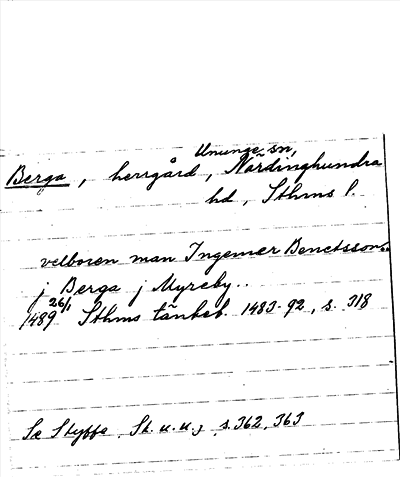 Ununge sn,
Berga, herrgård, Närdinghundra
hd, Sthms l.
velboren man Ingemer Benctsson..
j Berga j Myreby..
1489 26/1 Sthms tänkeb. 1483-92, s. 318
Se Styffe, Sk. u. u., s. 362, 363